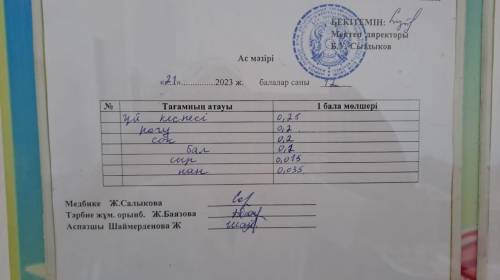 БЕКІТЕМІН:
Мектеп директоры
Б.У. Сыздыков
Ас мәзірі
«21»...............2023 ж. балалар саны 12
№ Тағамның атауы 1 бала мөлшері
үй кеспесі 0,25
рагу 0,2
сок 0,2
бал 0,1
сыр 0,015
нан 0,035
Медбике Ж.Салыкова
Тәрбие жұм. орынб. Ж.Баязова
Аспазшы Шаймерденова Ж